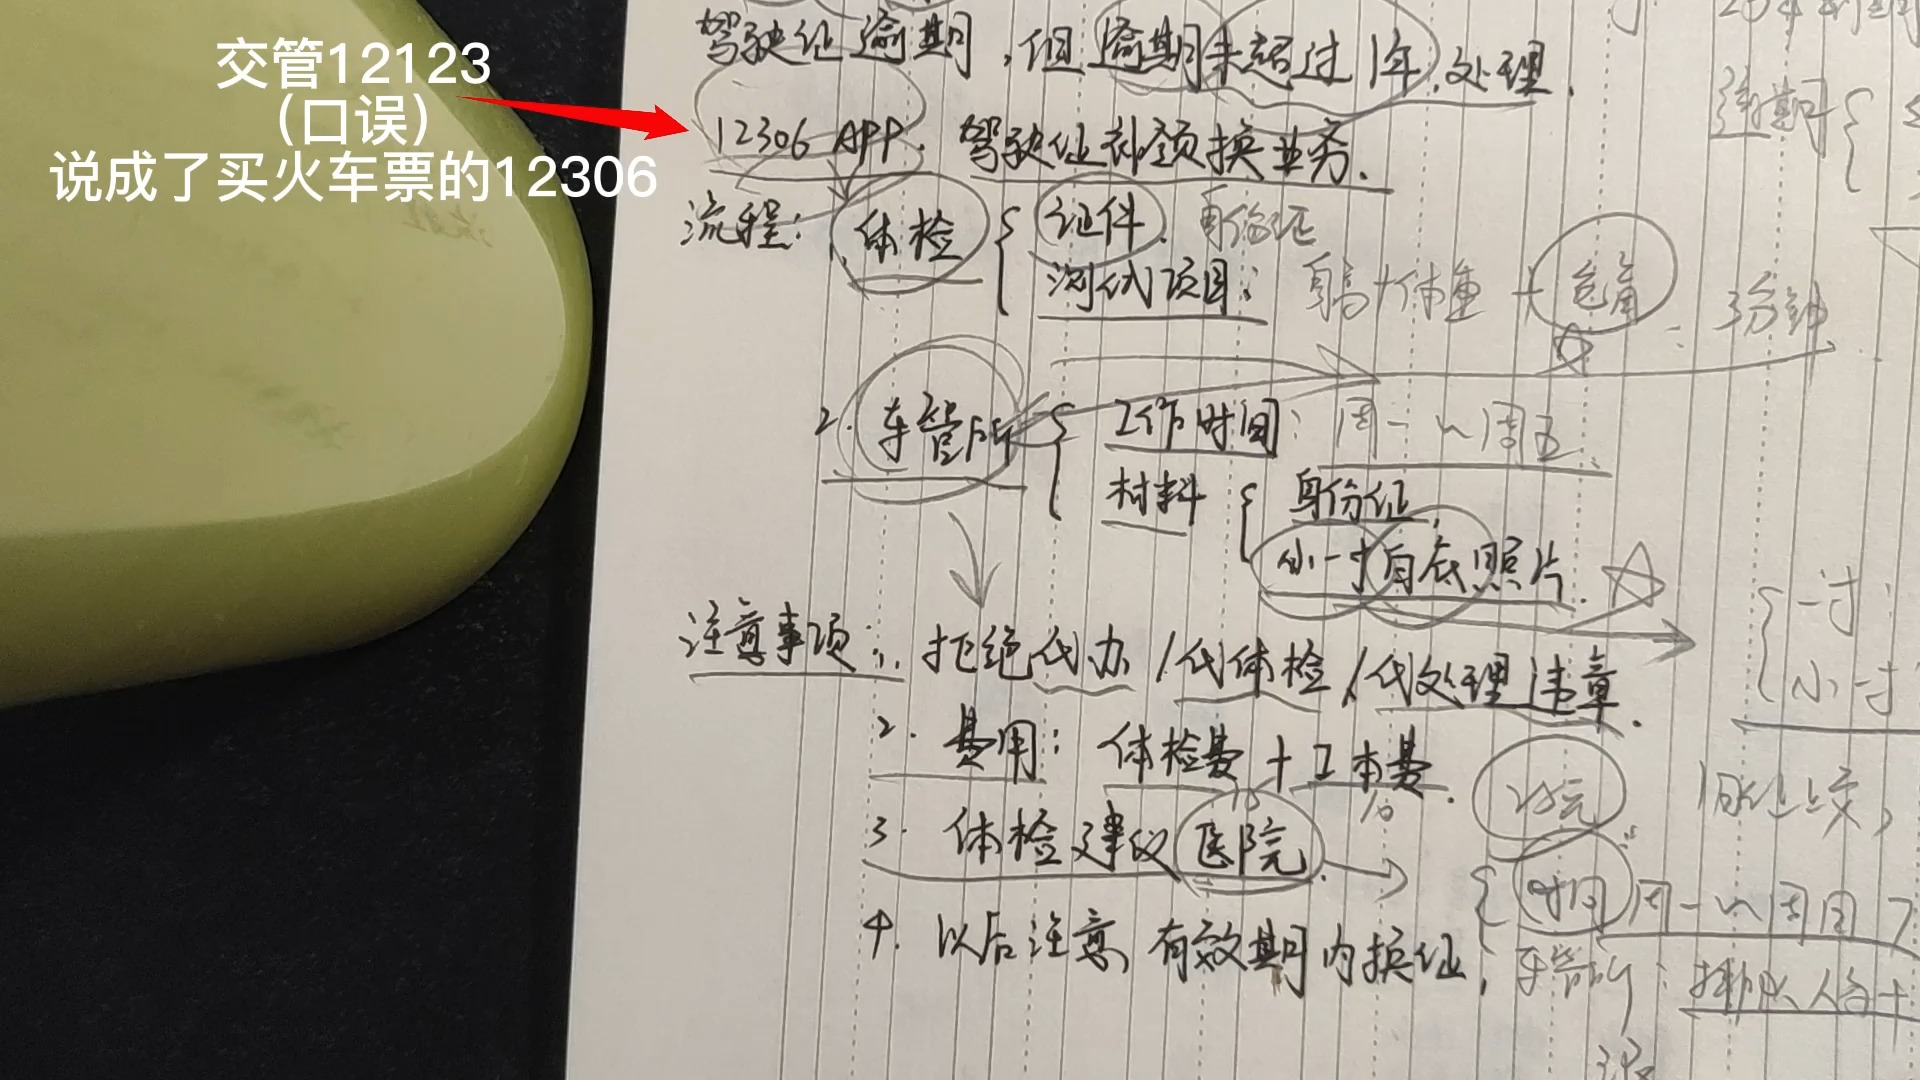 交管12123
（口误）
说成了买火车票的12306
驾驶证逾期，但逾期未超过1年，处理.
12306 APP. 驾驶证补领换业务.
流程: 1. 体检 证件. 身份证
测试项目: 身高+体重+色盲 3分钟
逾期
2. 车管所 工作时间: 周一~周五.
材料 身份证,
小一寸白底照片.
一寸:
小一寸
注意事项: 1. 拒绝代办/代体检/代处理违章.
2. 费用: 体检费+工本费.
10
3. 体检建议医院.
时间 周一~周四
4. 以后注意, 有效期内换证;
车管所: 排队人多